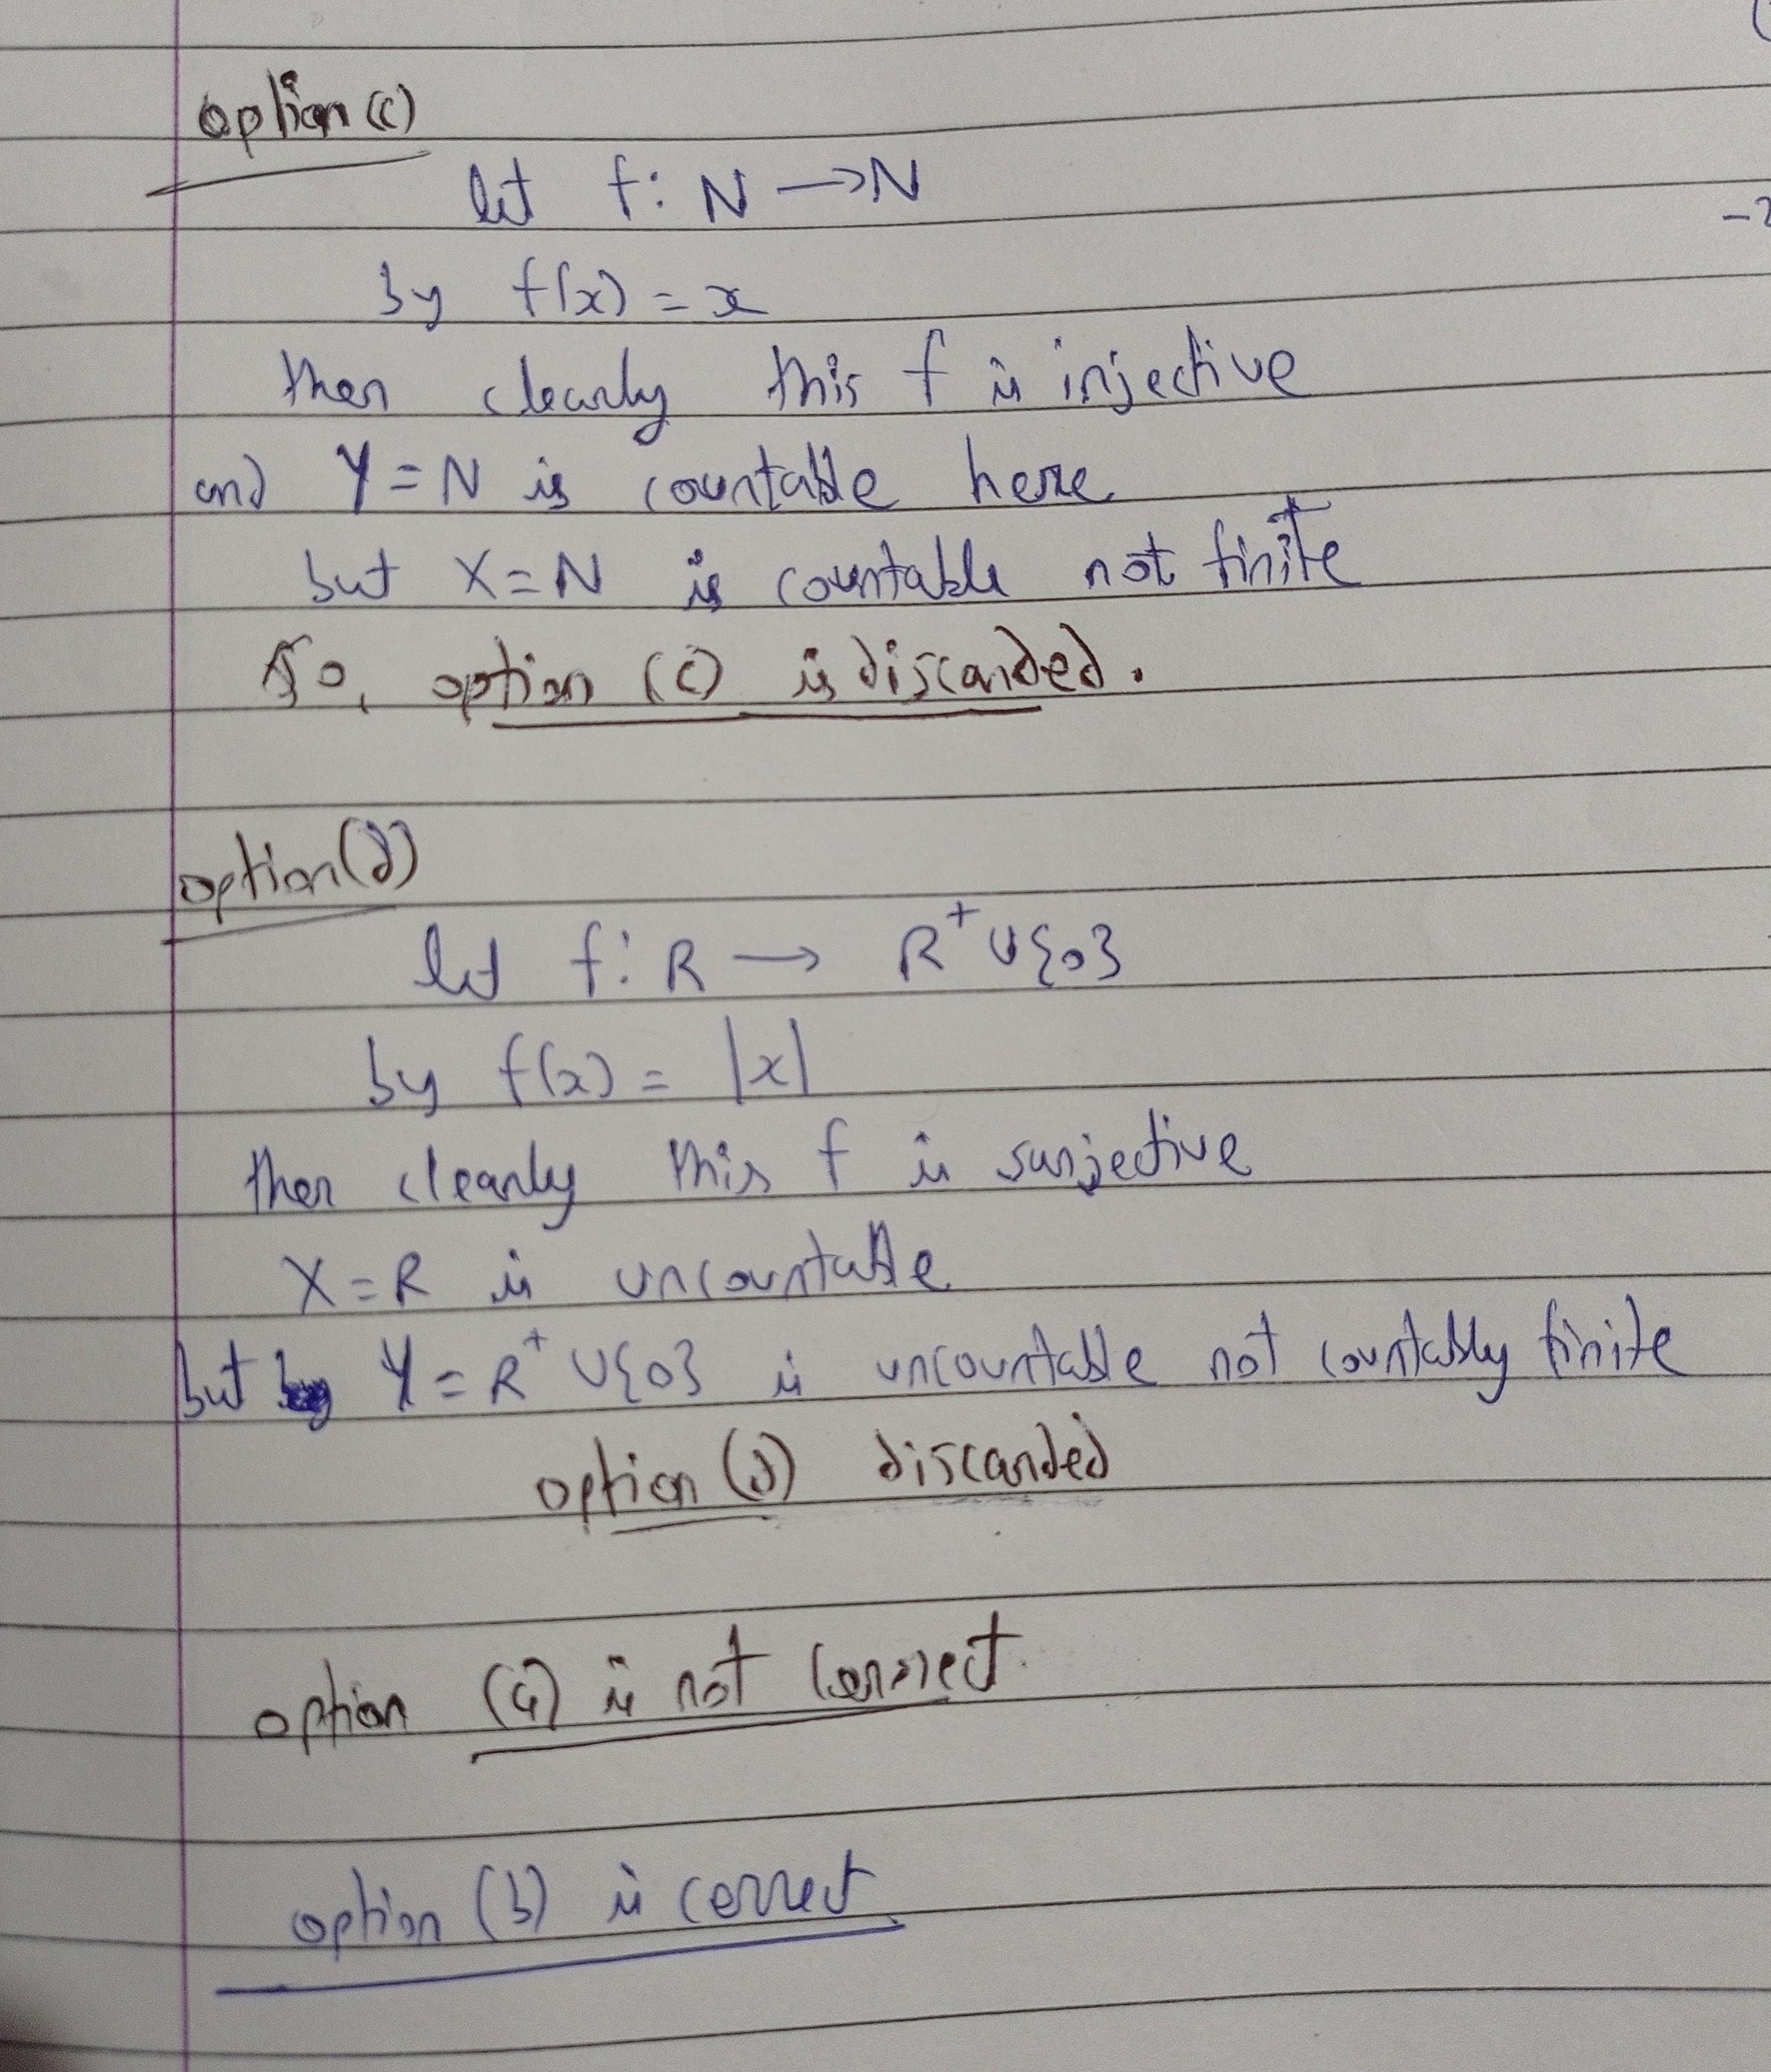 option (c)
let f: N → N
by f(x) = x
then clearly this f is injective
and Y = N is countable here
but X = N is countable not finite
So, option (c) is discarded.
option (d)
let f: R → R⁺ ∪ {0}
by f(x) = |x|
then clearly this f is surjective
X = R is uncountable
but Y = R⁺ ∪ {0} is uncountable not countably finite
option (d) discarded
option (a) is not correct.
option (b) is correct.